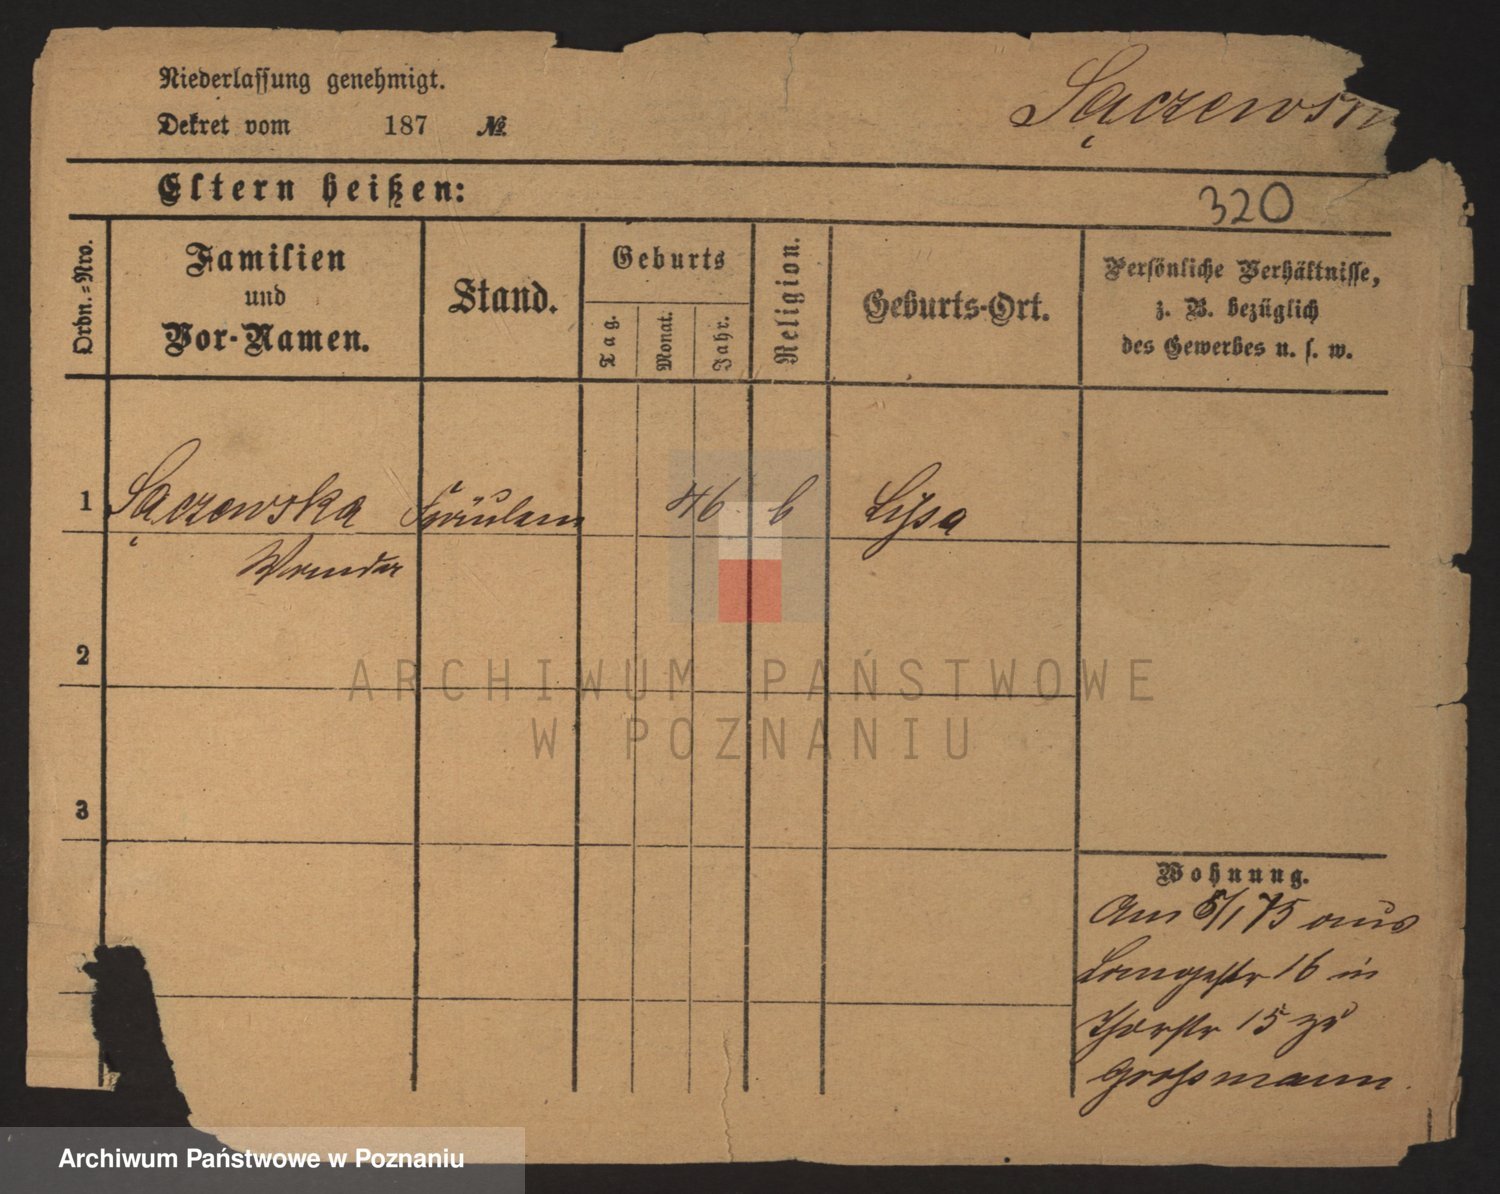 Niederlassung genehmigt.
Sączewsk
Dekret vom 187 №
Eltern heißen:
320
Ordn.-Nro.
Familien
und
Vor-Namen.
Stand.
Geburts
Tag.
Monat.
Jahr.
Religion.
Geburts-Ort.
Persönliche Verhältnisse,
z. B. bezüglich
des Gewerbes u. s. w.
1 Sączewska Fräulein 46 Lissa
2
3
Wohnung.
Am 8/1 75 aus
Langestr 16 in
Thorstr 15 zu
Grossmann.
ARCHIWUM PAŃSTWOWE
W POZNANIU
Archiwum Państwowe w Poznaniu